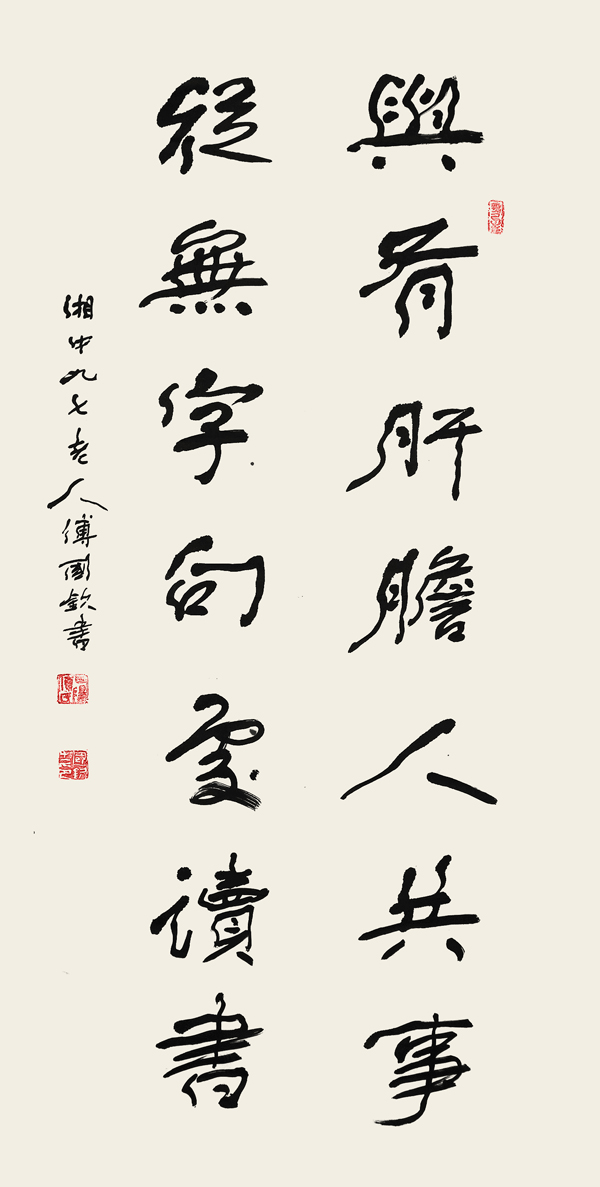 與有肝膽人共事
從無字句處讀書
湘中九七老人傅國欽書